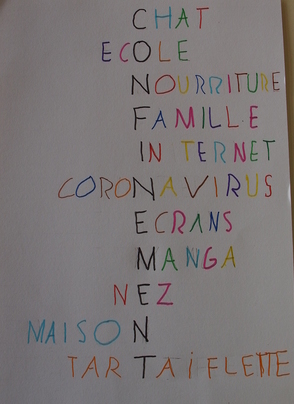 CHAT
ECOLE
NOURRITURE
FAMILLE
INTERNET
CORONAVIRUS
ECRANS
MANGA
NEZ
MAISON
TARTAIFLETTE